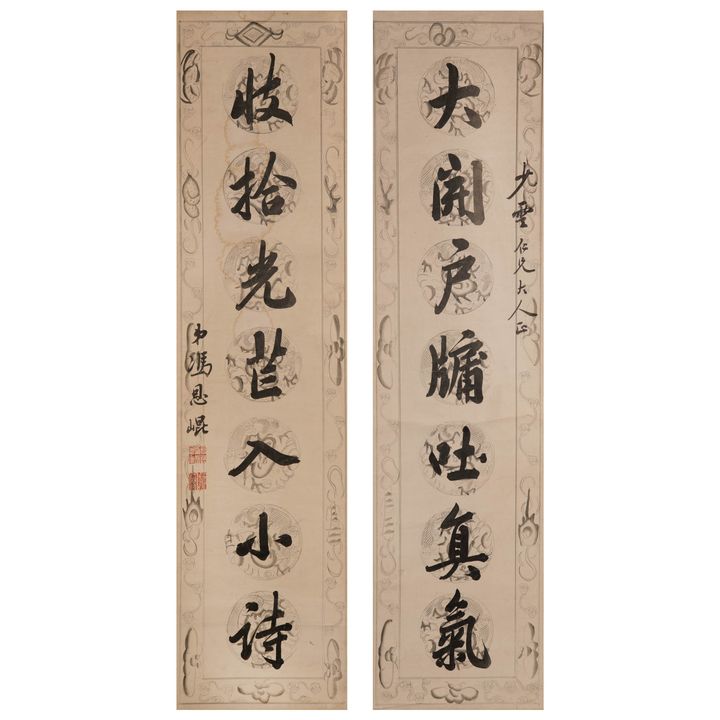 少雲仁兄大人正
大開戶牖吐真氣
收拾光芒入小詩
弟馮恩崐